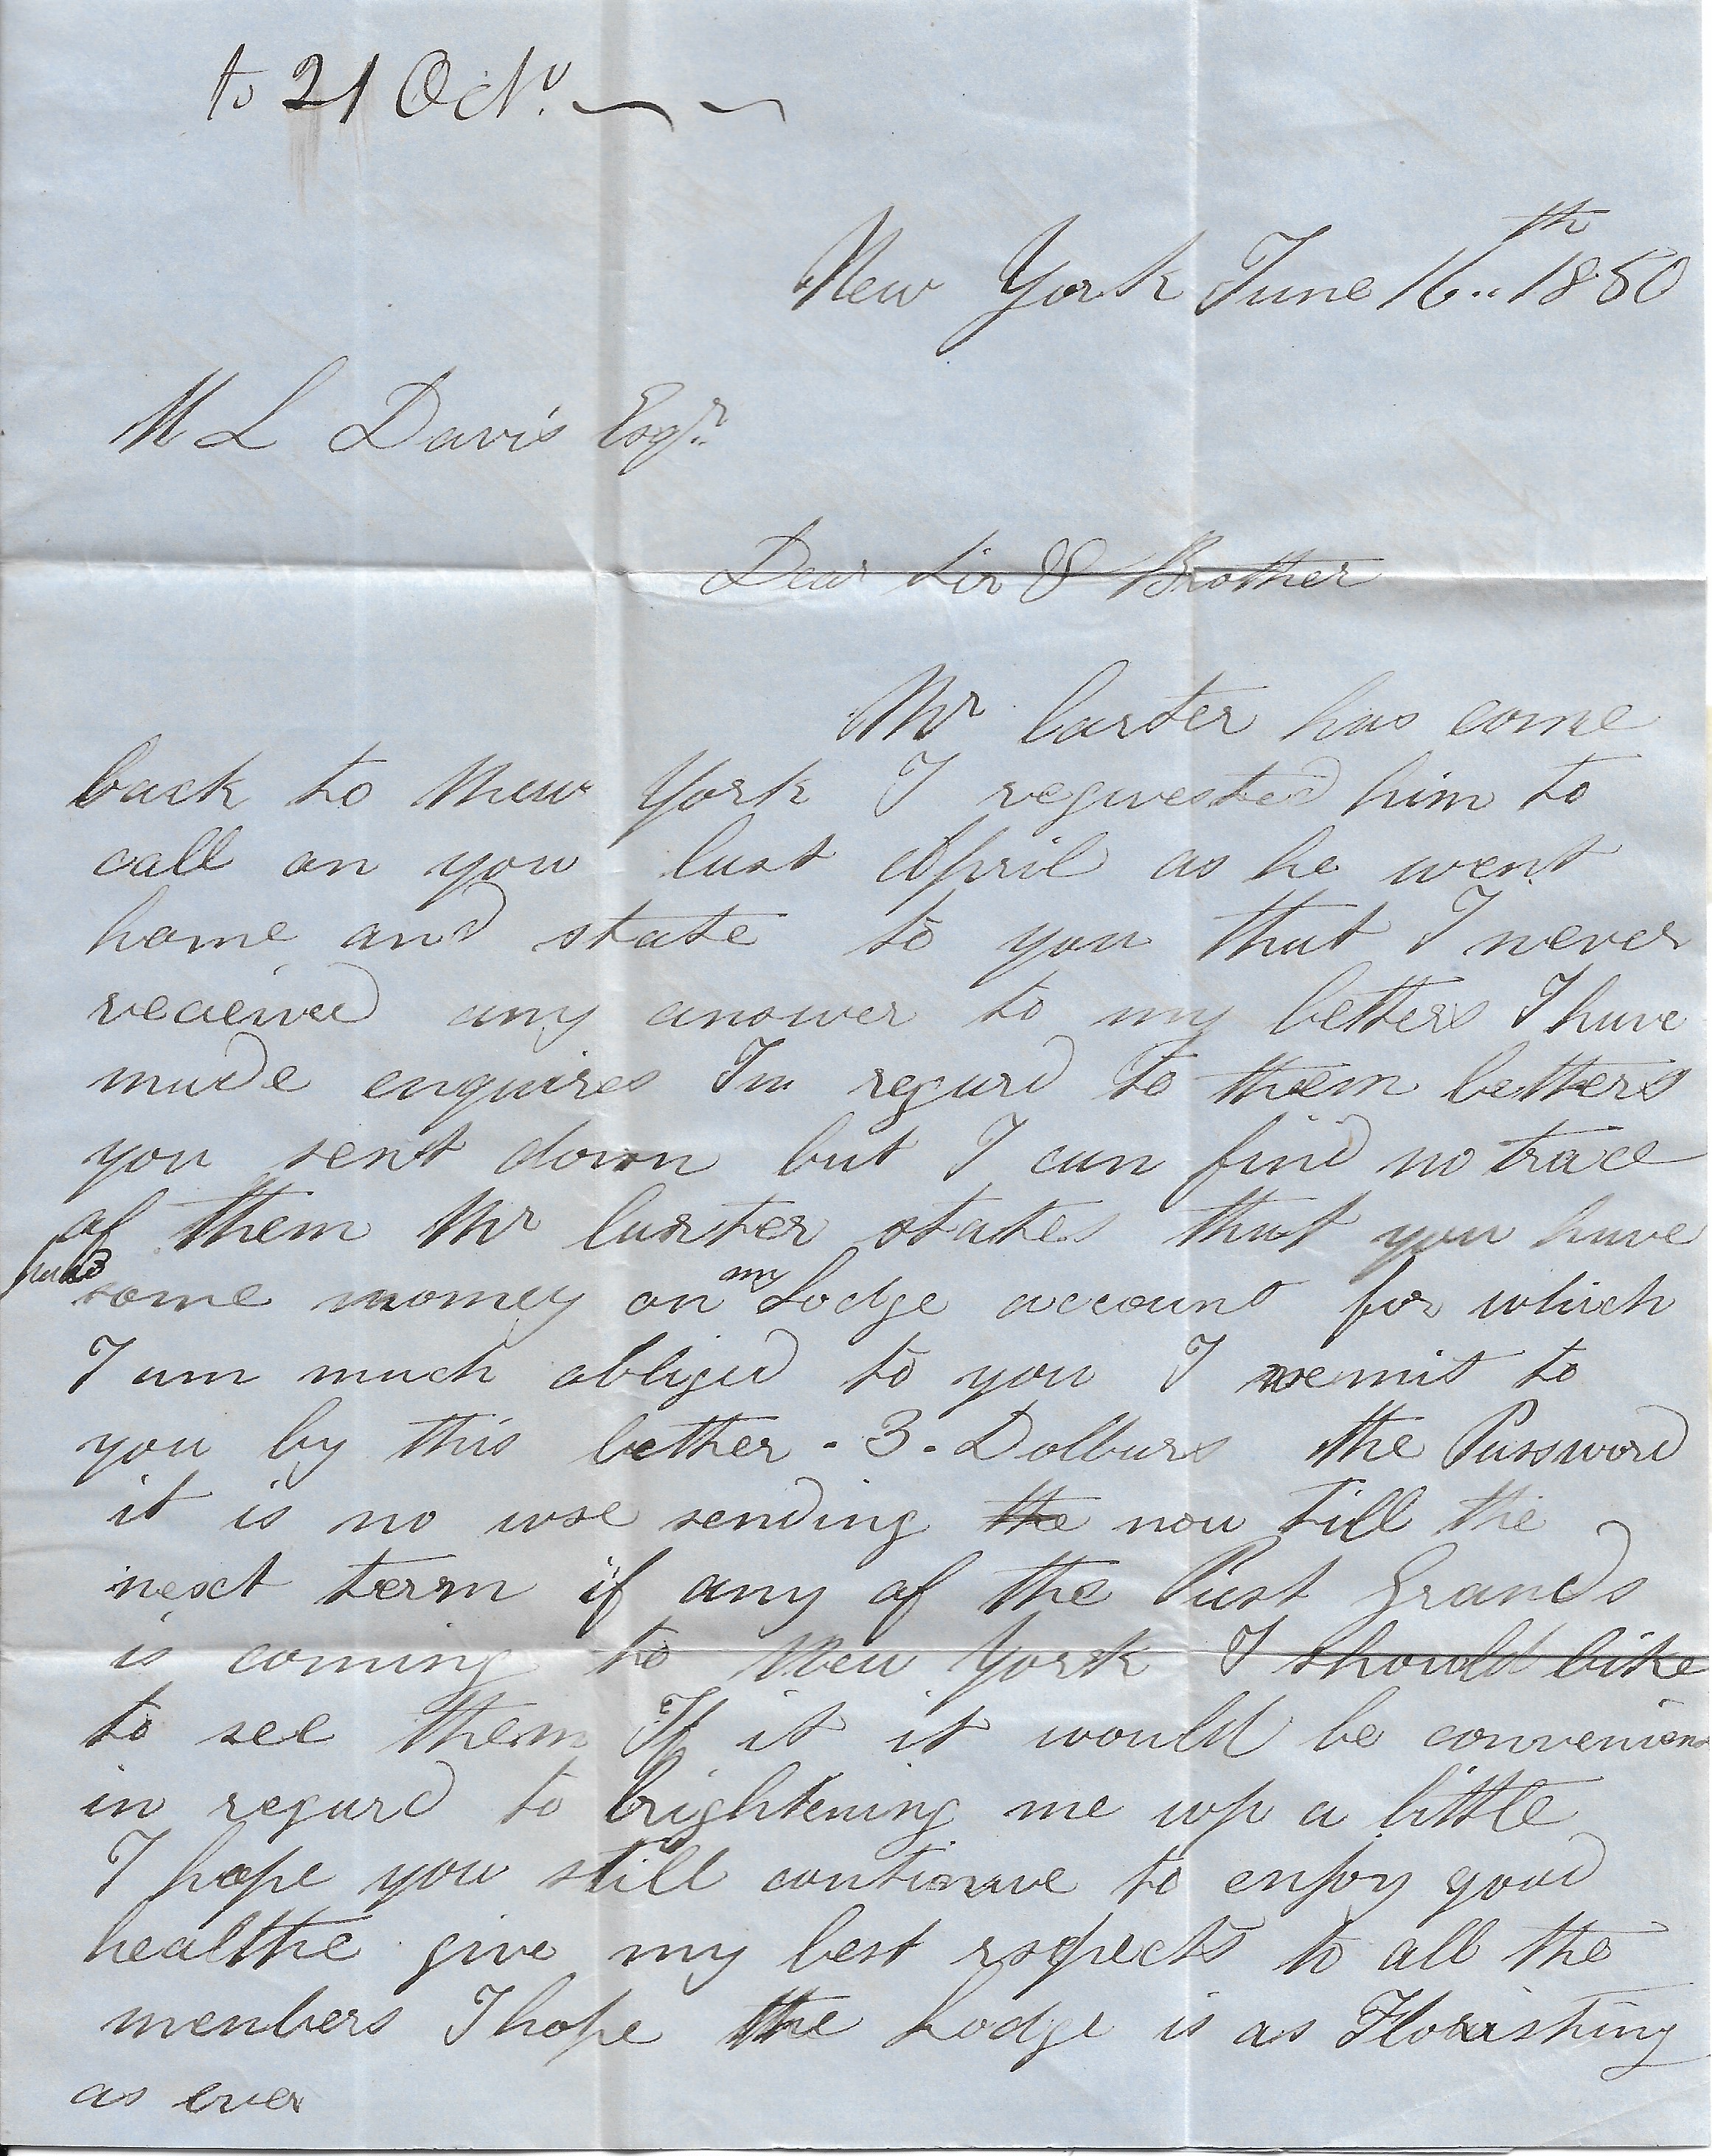 to 21 Octr.
New York June 16th 1850
M L Davis Esqr.
Dear Sir & Brother
Mr Carter has come
back to New York I requested him to
call on you last April as he went
home and state to you that I never
receiived any answer to my letters I have
made enquires In regard to them letters
you sent down but I can find no trace
of them Mr Carter states that you have
paid
some money on my Lodge account for which
I am much obliged to you I remit to
you by this letter . 3 . Dollars the Password
it is no use sending the now till the
next term if any of the Past Grands
is coming to New York I should like
to see them If it it would be convenient
in regard to brightening me up a little
I hope you still continue to enjoy good
healthe give my best rspects to all the
menbers I hope the Lodge is as Florishing
as ever